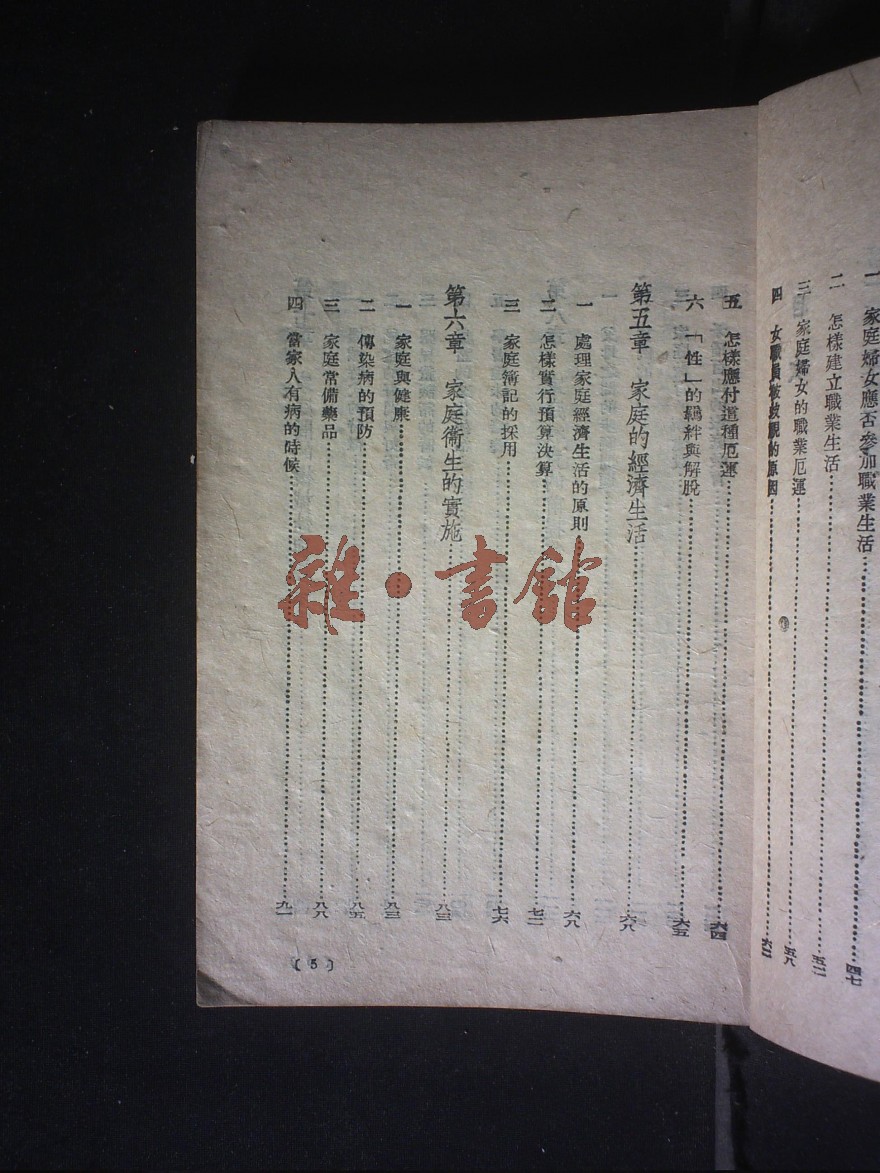 一 家庭婦女應否參加職業生活……四七
二 怎樣建立職業生活……五二
三 家庭婦女的職業厄運……五八
四 女職員被歧視的原因……六二
五 怎樣應付這種厄運……六四
六 「性」的羈絆與解脫……六五
第五章 家庭的經濟生活……六八
一 處理家庭經濟生活的原則……六八
二 怎樣實行預算決算……七二
三 家庭簿記的採用……七六
第六章 家庭衛生的實施……八三
一 家庭與健康……八三
二 傳染病的預防……八五
三 家庭常備藥品……八八
四 當家人有病的時候……九一
〔5〕
雜·書館